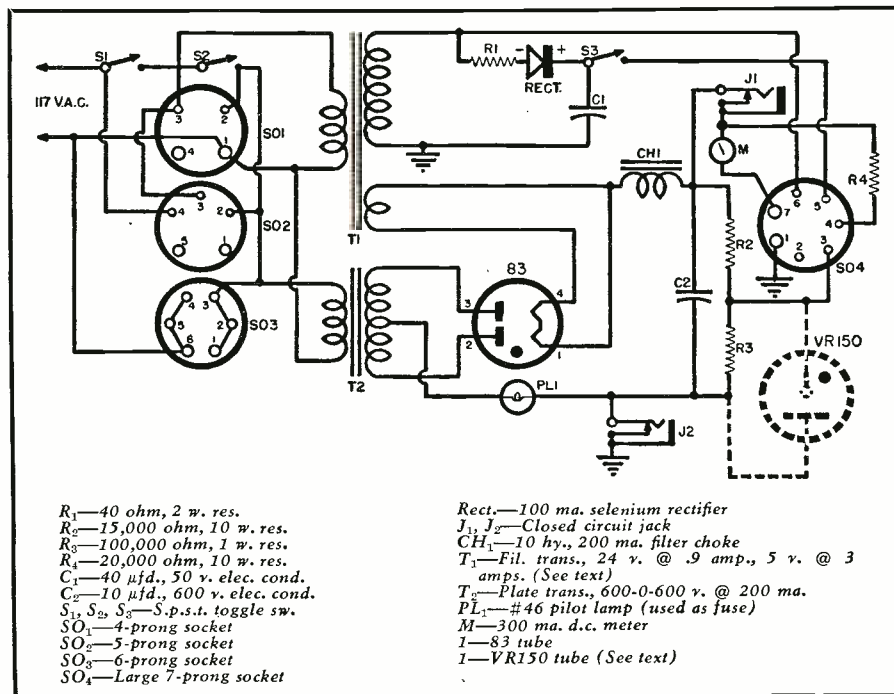 S1
S2
R1
- +
RECT.
S3
J1
117 V.A.C.
3 2
SO1
4 1
C1
M
CH1
R4
3
4 2
SO2
5 1
T1
6 5
7 4
1 3
2
SO4
R2
83
C2
4 3
5 2
SO3
6 1
3 4
2 1
T2
R3
VR150
PL1
J2
R₁—40 ohm, 2 w. res.
R₂—15,000 ohm, 10 w. res.
R₃—100,000 ohm, 1 w. res.
R₄—20,000 ohm, 10 w. res.
C₁—40 μfd., 50 v. elec. cond.
C₂—10 μfd., 600 v. elec. cond.
S₁, S₂, S₃—S.p.s.t. toggle sw.
SO₁—4-prong socket
SO₂—5-prong socket
SO₃—6-prong socket
SO₄—Large 7-prong socket
Rect.—100 ma. selenium rectifier
J₁, J₂—Closed circuit jack
CH₁—10 hy., 200 ma. filter choke
T₁—Fil. trans., 24 v. @ .9 amp., 5 v. @ 3
amps. (See text)
T₂—Plate trans., 600-0-600 v. @ 200 ma.
PL₁—#46 pilot lamp (used as fuse)
M—300 ma. d.c. meter
1—83 tube
1—VR150 tube (See text)